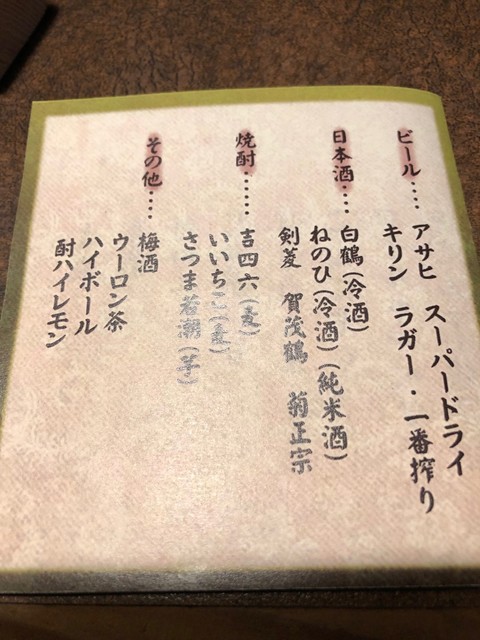 ビール‥‥
アサヒ スーパードライ
キリン ラガー・一番搾り
日本酒‥‥
白鶴(冷酒)
ねのひ(冷酒)(純米酒)
剣菱 賀茂鶴 菊正宗
焼酎‥‥‥
吉四六(麦)
いいちこ(麦)
さつま若潮(芋)
その他‥‥
梅酒
ウーロン茶
ハイボール
酎ハイレモン